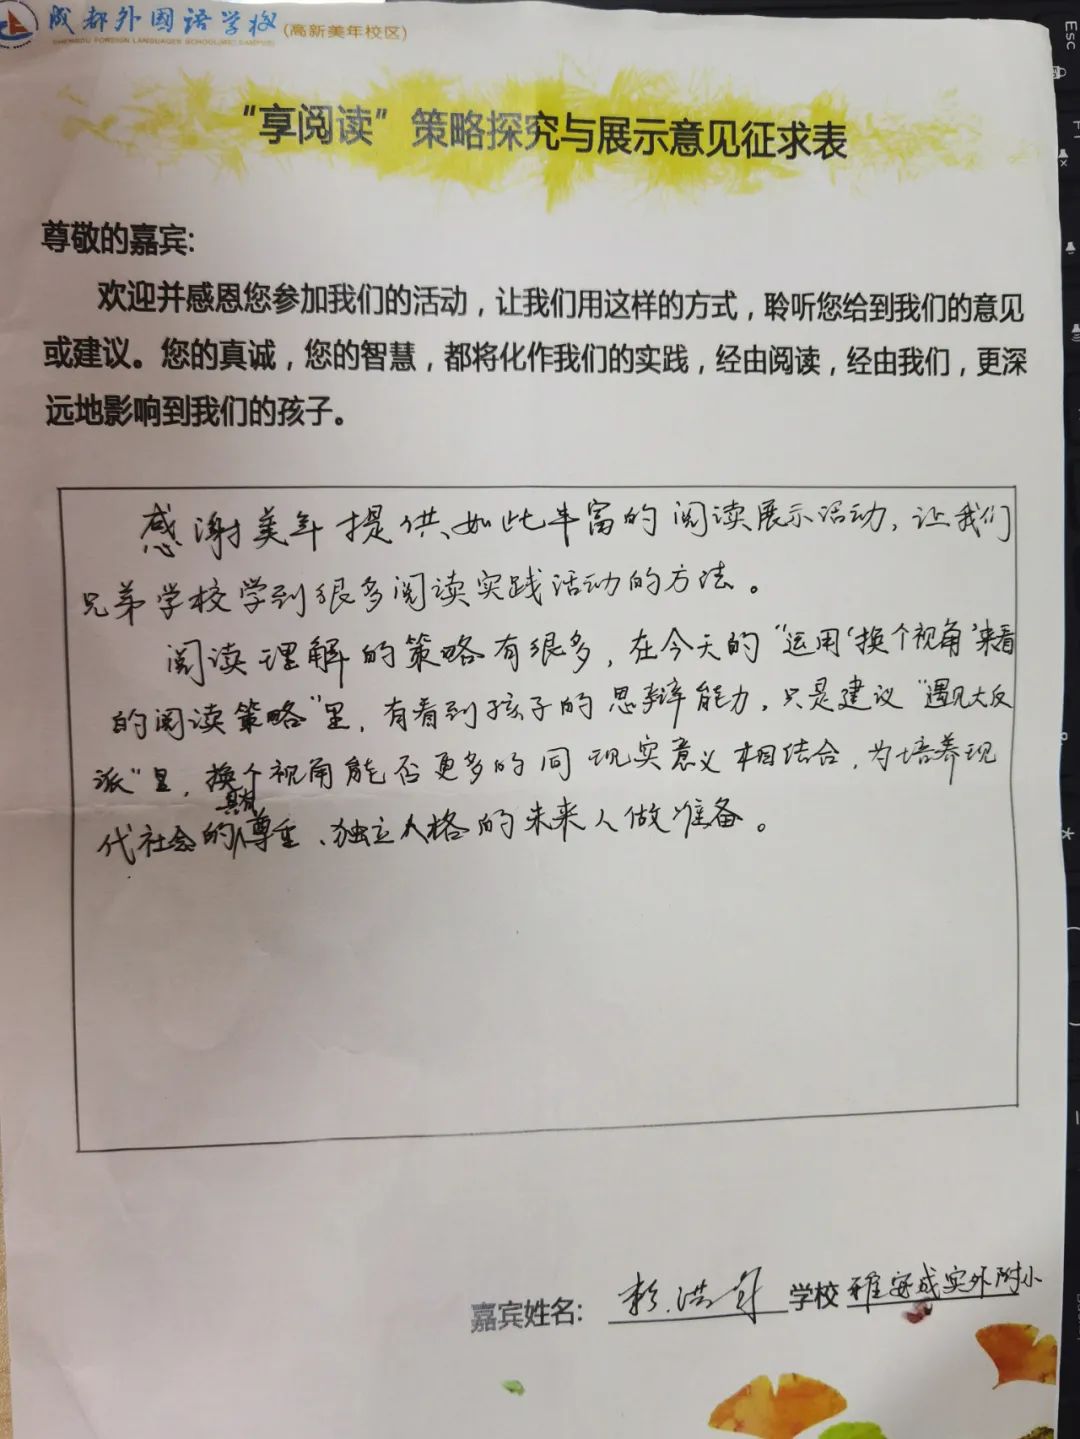 成都外国语学校(高新美年校区)
“享阅读”策略探究与展示意见征求表
尊敬的嘉宾:
欢迎并感恩您参加我们的活动，让我们用这样的方式，聆听您给到我们的意见
或建议。您的真诚，您的智慧，都将化作我们的实践，经由阅读，经由我们，更深
远地影响到我们的孩子。
感谢美年提供如此丰富的阅读展示活动，让我们
兄弟学校学到很多阅读实践活动的方法。
阅读理解的策略有很多，在今天的“运用‘换个视角’来看
的阅读策略”里，有看到孩子的思辩能力，只是建议“遇见大反
派”里，换个视角能否更多的同现实意义相结合，为培养现
代社会的具有尊重、独立人格的未来人做准备。
嘉宾姓名: 学校 雅安成实外附小
Esc